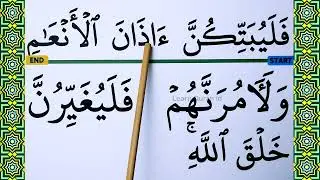 فَلَيُبَتِّكُنَّ ءَاذَانَ ٱلْأَنْعَـٰمِ
END START
وَلَـَٔامُرَنَّهُمْ فَلَيُغَيِّرُنَّ
خَلْقَ ٱللَّهِۚ